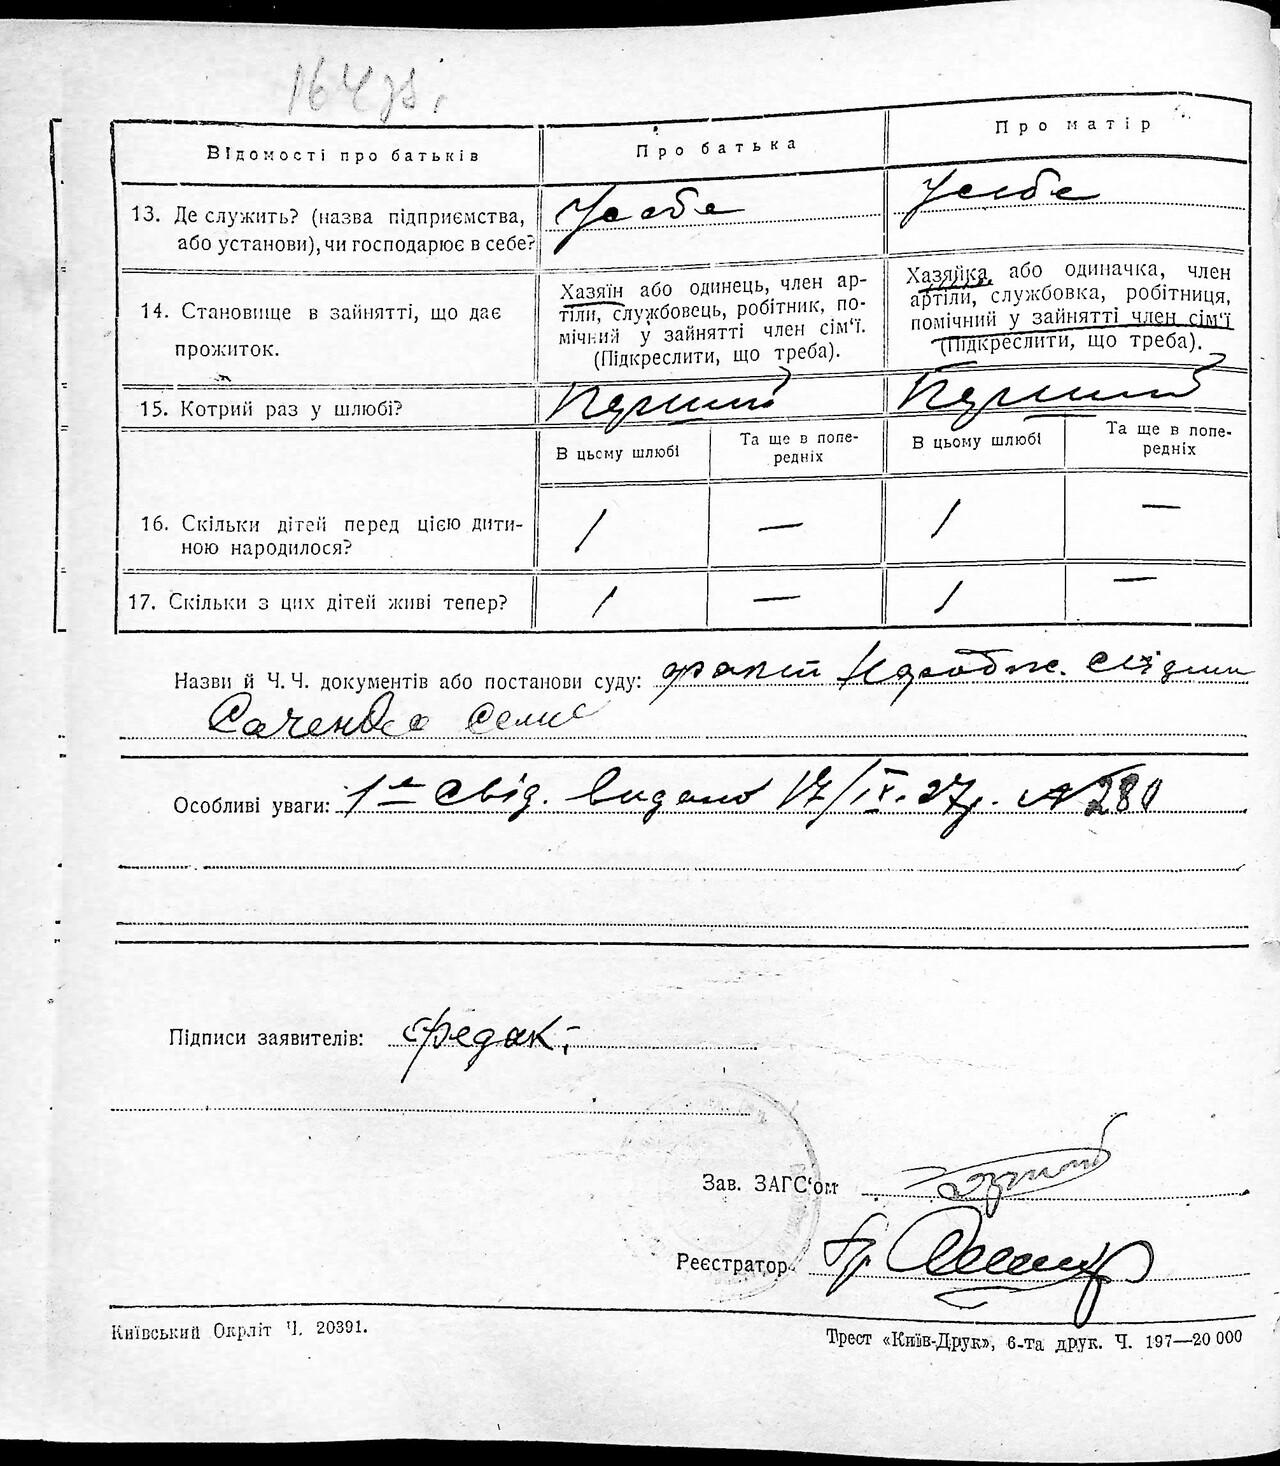 164 зв.
Відомості про батьків
Про батька
Про матір
13. Де служить? (назва підприємства,
або установи), чи господарює в себе?
У себе
У себе
14. Становище в зайнятті, що дає
прожиток.
Хазяїн або одинець, член ар-
тіли, службовець, робітник, по-
мічний у зайнятті член сім'ї.
(Підкреслити, що треба).
Хазяйка, або одиначка, член
артіли, службовка, робітниця,
помічний у зайнятті член сім'ї
(Підкреслити, що треба).
15. Котрий раз у шлюбі?
Перший
Перший
В цьому шлюбі
Та ще в попе-
редніх
В цьому шлюбі
Та ще в попе-
редніх
16. Скільки дітей перед цією дити-
ною народилося?
1
—
1
—
17. Скільки з цих дітей живі тепер?
1
—
1
—
Назви й Ч. Ч. документів або постанови суду: факт народж.
Особливі уваги: 1-ше свід. видано 17/IX. 27р. №280
Підписи заявителів:
Зав. ЗАГС'ом
Реєстратор
Київський Окрліт Ч. 20391.
Трест «Київ-Друк», 6-та друк. Ч. 197—20 000